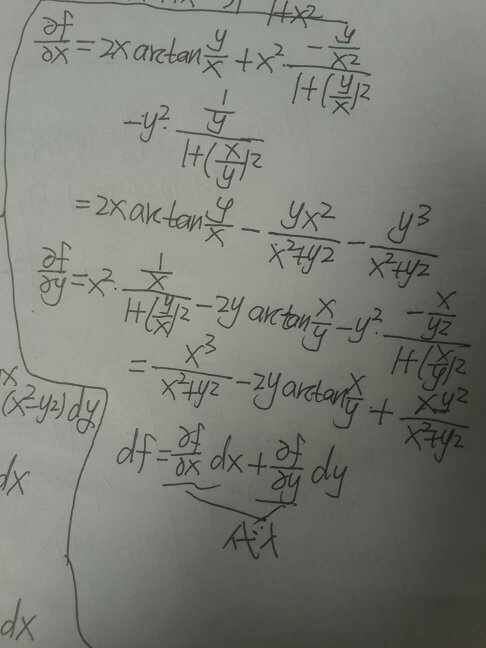 1+x²
∂f/∂x = 2x arctan y/x + x² · (-y/x²)/(1+(y/x)²)
-y² · (1/y)/(1+(x/y)²)
= 2x arctan y/x - yx²/(x²+y²) - y³/(x²+y²)
∂f/∂y = x² · (1/x)/(1+(y/x)²) - 2y arctan x/y - y² · (-x/y²)/(1+(x/y)²)
= x³/(x²+y²) - 2y arctan x/y + xy²/(x²+y²)
(x²-y²) dy
df = ∂f/∂x dx + ∂f/∂y dy
dx
dx